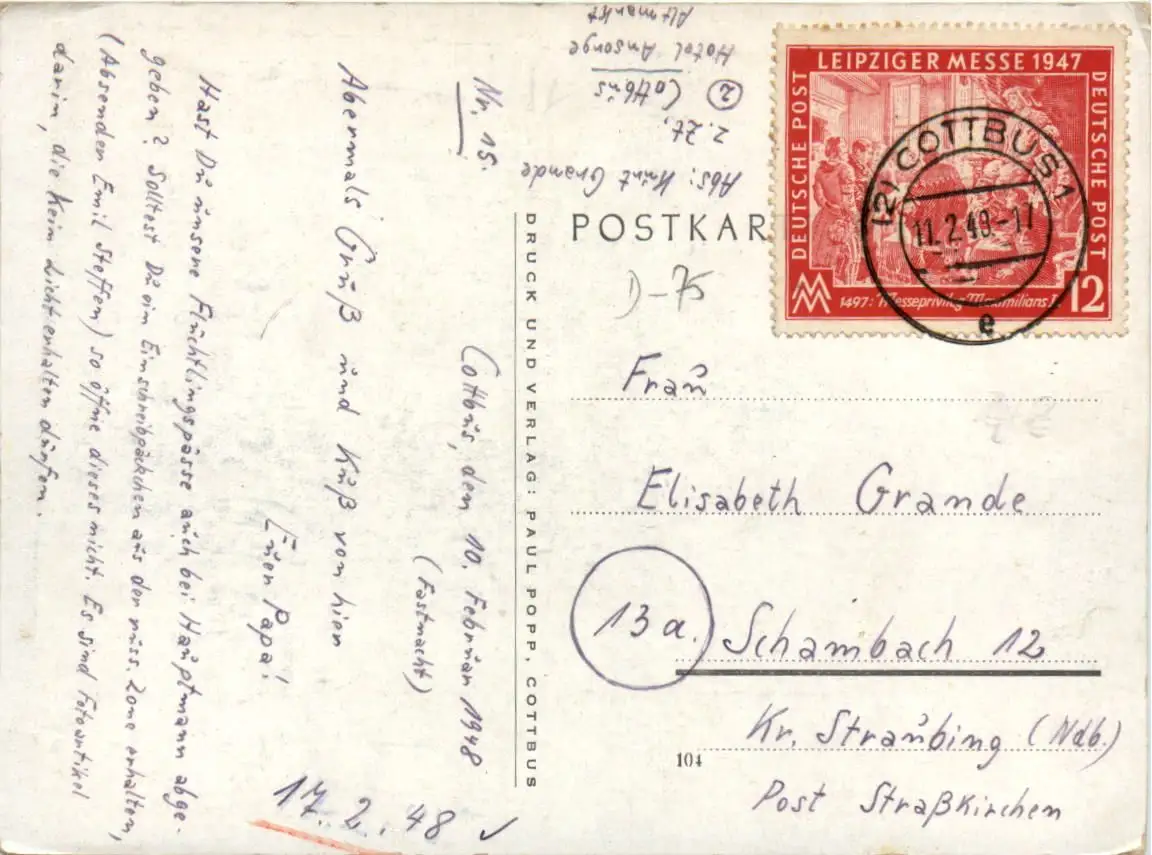 Nr. 15.
Cottbus, den 10. Februar 1948
(Fastnacht)
Abermals Gruß und Kuß von hier
Euer Papa!
Hast Du unsere Flüchtlingspässe auch bei Hauptmann abge-
geben? Solltest Du ein Einschreibpäckchen aus der russ. Zone erhalten,
(Absender Emil Steffen) so öffne dieses nicht. Es sind Fotoartikel
darin, die kein Licht erhalten dürfen.
17.2.48 ✓
Abs: Kurt Grande
z. Zt.
② Cottbus
Hotel Ansorge
Altmarkt
DRUCK UND VERLAG: PAUL POPP, COTTBUS
POSTKAR
LEIPZIGER MESSE 1947
DEUTSCHE POST
DEUTSCHE POST
1497: Messeprivileg Maximilians I.
12
(2) COTTBUS 1
11.2.48-17
e
D-75
Frau
Elisabeth Grande
13a. Schambach 12
Kr. Straubing (Ndb.)
104
Post Straßkirchen